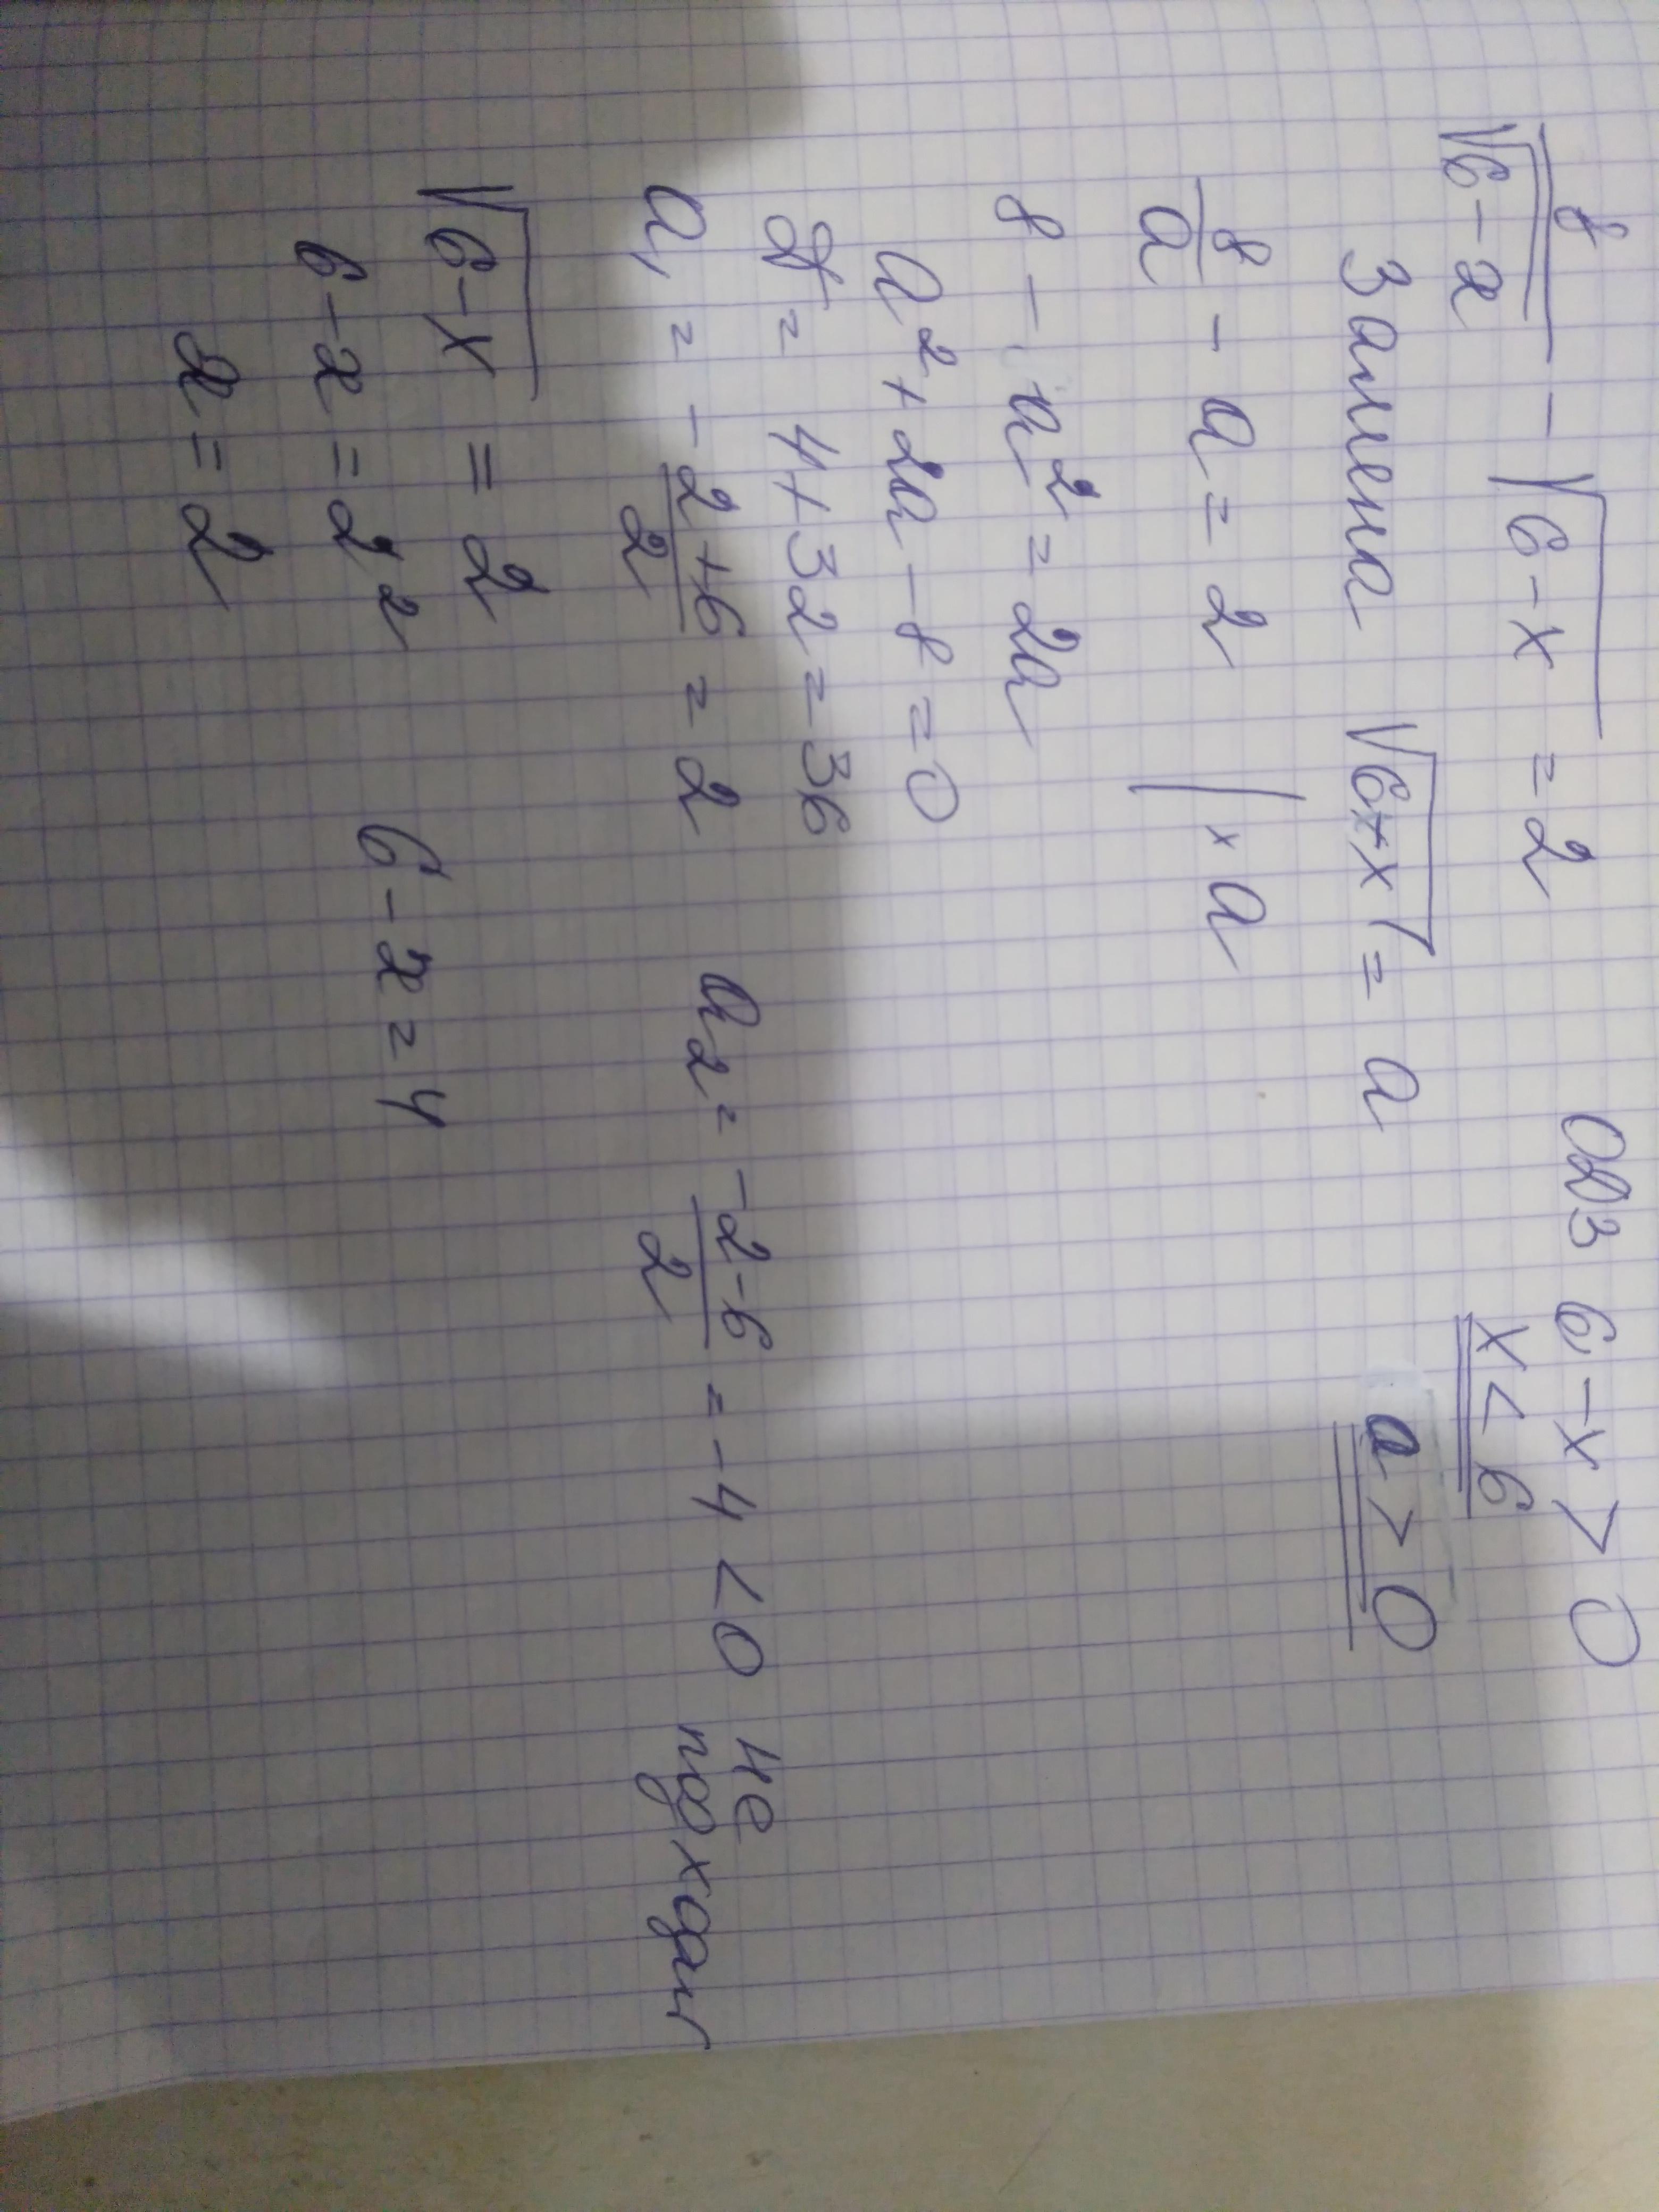 8/√(6-x) - √(6-x) = 2 ОДЗ 6-x > 0
x < 6
Замена √(6-x) = a a > 0
8/a - a = 2 | × a
8 - a² = 2a
a² + 2a - 8 = 0
D = 4 + 32 = 36
a₁ = (-2+6)/2 = 2 a₂ = (-2-6)/2 = -4 < 0 не подходит
√(6-x) = 2
6-x = 2² 6-x = 4
x = 2